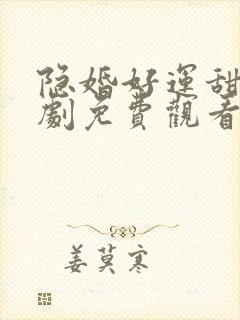 隐婚好運甜
劇免費觀看
姜莫寒